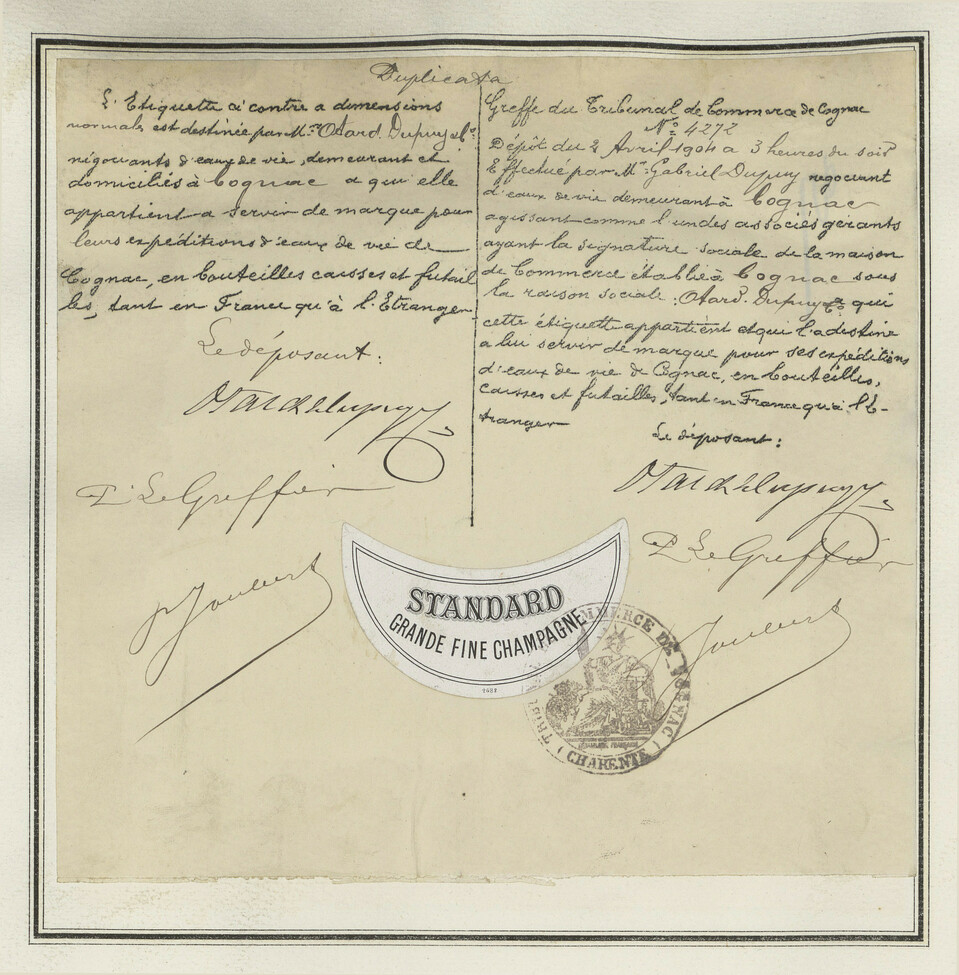 Duplicata
L'Etiquette ci contre a dimensions
normales est destinée par Mrs Otard. Dupuy & Co
négociants d'eaux de vie, demeurant et
domiciliés à Cognac a qui elle
appartient a servir de marque pour
leurs expéditions d'eaux de vie de
Cognac, en bouteilles caisses et futail
les, tant en France qu'à l'Etranger.
Le déposant:
Otard Dupuy
P. Le Greffier
Joubert
Greffe du Tribunal de Commerce de Cognac
No 4272
Dépôt du 2 Avril 1904 a 3 heures du soir
Effectué par Mr Gabriel Dupuy negociant
d'eaux de vie demeurant à Cognac
agissant comme l'un des associés gérants
ayant la signature sociale de la maison
de Commerce établie à Cognac sous
la raison sociale. Otard. Dupuy & Co qui
cette étiquette appartient et qui l'a destine
a lui servir de marque pour ses expéditions
d'eaux de vie de Cognac, en bouteilles,
caisses et futailles, tant en France qu'à l'E-
tranger
Le déposant:
Otard Dupuy
P. Le Greffier
Joubert
STANDARD
GRANDE FINE CHAMPAGNE
COMMERCE DE COGNAC
(CHARENTE)